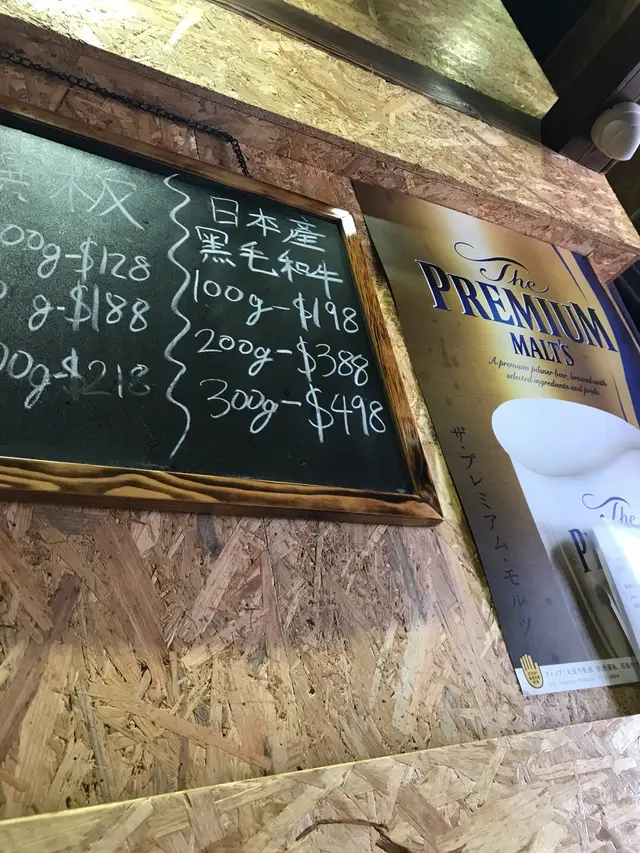 板
00g-$128
g-$188
00g-$218
日本產
黑毛和牛
100g-$198
200g-$388
300g-$498
The
PREMIUM
MALT'S
A premium pilsner beer, brewed with
selected ingredients and pride.
ザ・プレミアム・モルツ
The